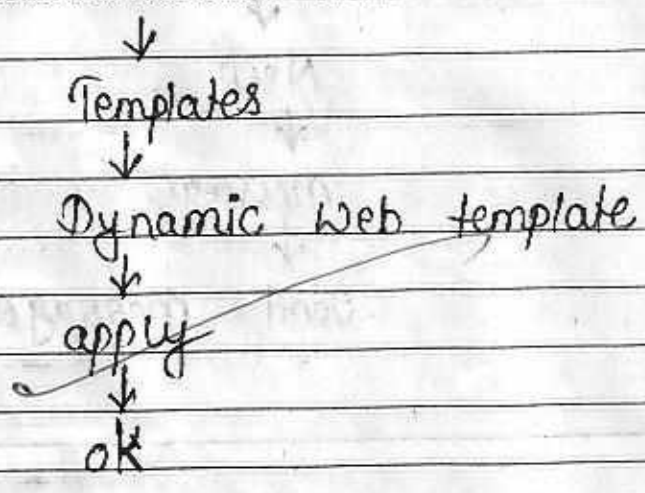 ↓
Templates
↓
Dynamic Web template
↓
apply
↓
ok